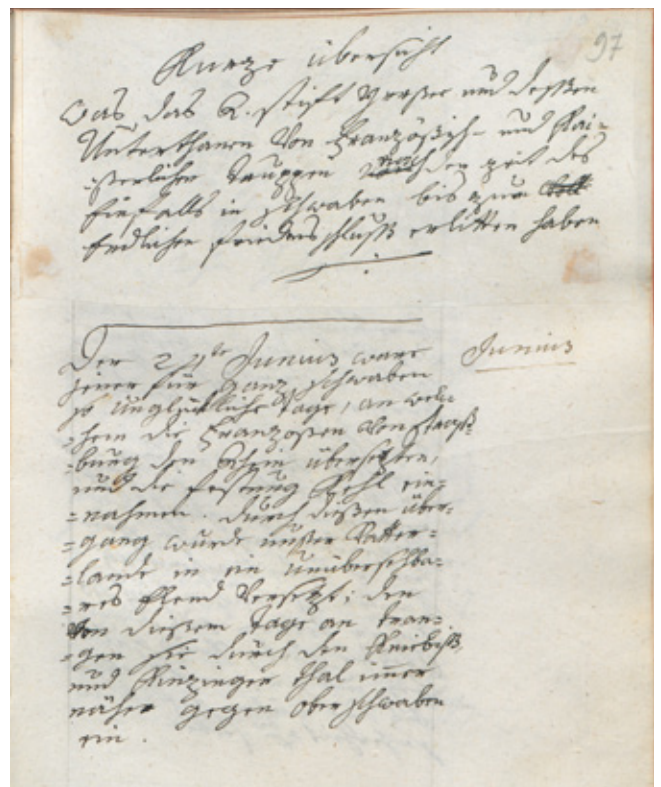 97
Kurze übersicht
was das R. stift und dessen
Unterthanen von Französisch- und Kai-
serlichen Truppen nach der zeit des
Einfalls in schwaben bis zum
Endlichen friedensschluß erlitten haben
Der 24te Junius ware
Junius
jener für ganz schwaben
so unglückliche tage, an wel-
=chem die Franzosen von straß-
=burg den Rhein übersezten,
und die festung Kehl ein-
=nahmen. durch diesen über-
=gang wurde unser Vatter-
=lande in ein unübersehba-
=res Elend versezt; den
von diesem tage an tran-
=gen sie durch den Kniebiß,
und Kinzinger thal immer
näher gegen oberschwaben
ein.